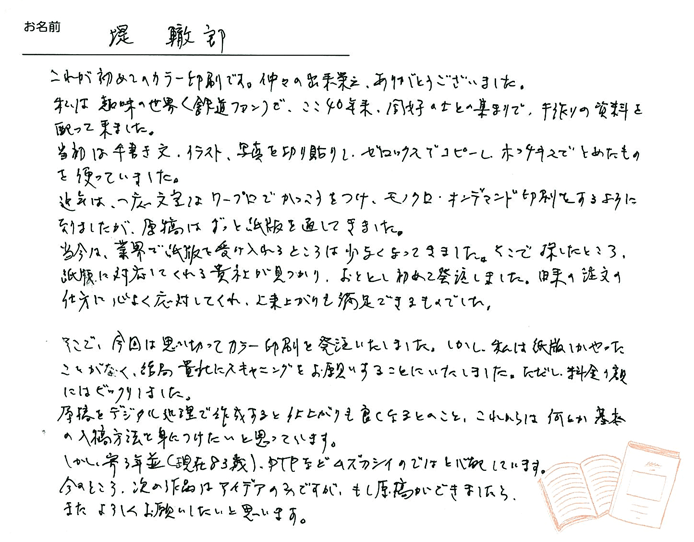 お名前 堤 轍郎
これが初めてのカラー印刷です。仲々の出来栄え、ありがとうございました。
私は趣味の世界(鉄道ファン)で、ここ40年来、同好の士との集まりで、手作りの資料を
配って来ました。
当初は手書き文、イラスト、写真を切り貼りし、ゼロックスでコピーし、ホッチキスでとめたもの
を使っていました。
近年は、一応文字はワープロでかっこうをつけ、モノクロ・オンデマンド印刷をするように
なりましたが、原稿はずっと紙版を通してきました。
当今は、業界で紙版を受け入れるところは少なくなってきました。そこで探したところ、
紙版に対応してくれる貴社が見つかり、おととし初めて発注しました。由来の注文の
仕方に心よく応対してくれ、上来上がりも満足できるものでした。
そこで、今回は思い切ってカラー印刷を発注いたしました。しかし、私は紙版しかやった
ことがなく、結局貴社にスキャニングをお願いすることにいたしました。ただし、料金の額
にはビックリしました。
原稿をデジタル処理で作成すると仕上がりも良くなるとのこと、これからは何とか基本
の入稿方法を身につけたいと思っています。
しかし、寄る年並(現在83歳)、DTPなどムズカシイのではと心配しています。
今のところ、次の作品はアイデアのみですが、もし原稿ができましたら、
またよろしくお願いしたいと思います。